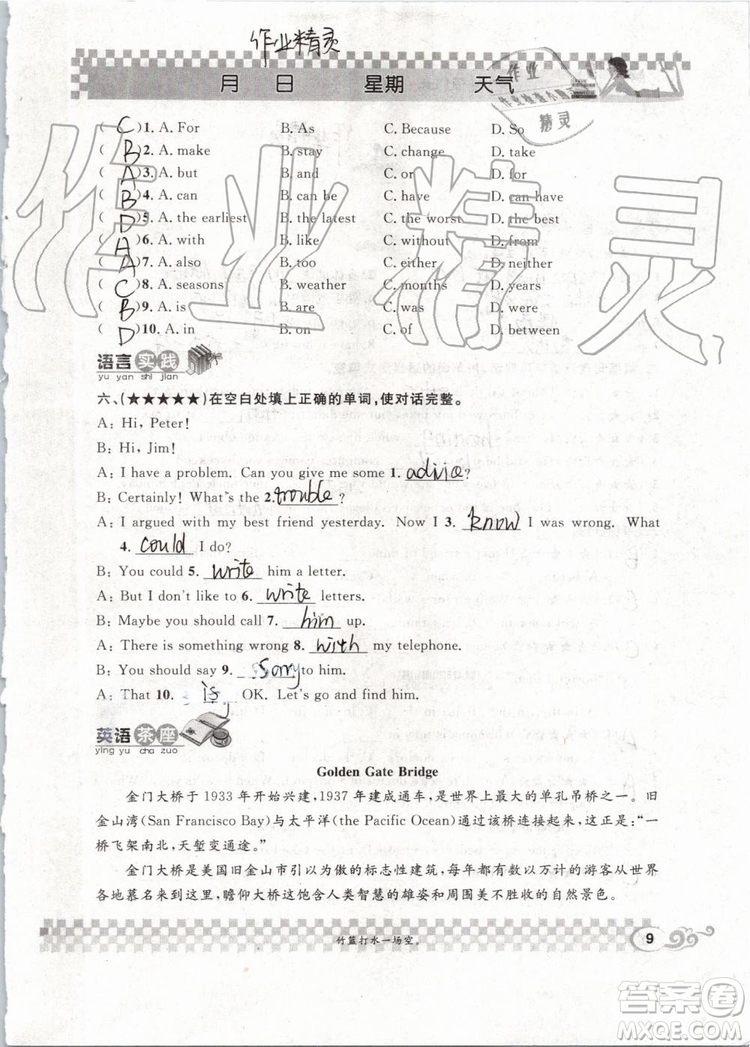 作业精灵
月 日 星期 天气
作业
精灵
( C )1. A. For B. As C. Because D. So
( B )2. A. make B. stay C. change D. take
( A )3. A. but B. and C. or D. so
( B )4. A. can B. can be C. have D. can have
( D )5. A. the earliest B. the latest C. the worst D. the best
( A )6. A. with B. like C. without D. from
( A )7. A. also B. too C. either D. neither
( C )8. A. seasons B. weather C. months D. years
( B )9. A. is B. are C. was D. were
( D )10. A. in B. on C. of D. between
作业精灵
语言实践
yu yan shi jian
六、(★★★★★)在空白处填上正确的单词,使对话完整。
A: Hi, Peter!
B: Hi, Jim!
A: I have a problem. Can you give me some 1. advice?
B: Certainly! What's the 2. trouble?
A: I argued with my best friend yesterday. Now I 3. know I was wrong. What
4. could I do?
B: You could 5. write him a letter.
A: But I don't like to 6. write letters.
B: Maybe you should call 7. him up.
A: There is something wrong 8. with my telephone.
B: You should say 9. Sorry to him.
A: That 10. is OK. Let's go and find him.
英语茶座
ying yu cha zuo
Golden Gate Bridge
金门大桥于1933年开始兴建,1937年建成通车,是世界上最大的单孔吊桥之一。旧
金山湾(San Francisco Bay)与太平洋(the Pacific Ocean)通过该桥连接起来,这真是:“一
桥飞架南北,天堑变通途。”
金门大桥是美国旧金山市引以为傲的标志性建筑,每年都有数以万计的游客从世界
各地慕名来到这里,瞻仰大桥这饱含人类智慧的雄姿和周围美不胜收的自然景色。
竹篮打水一场空。
9
答案圈
MXQE.COM